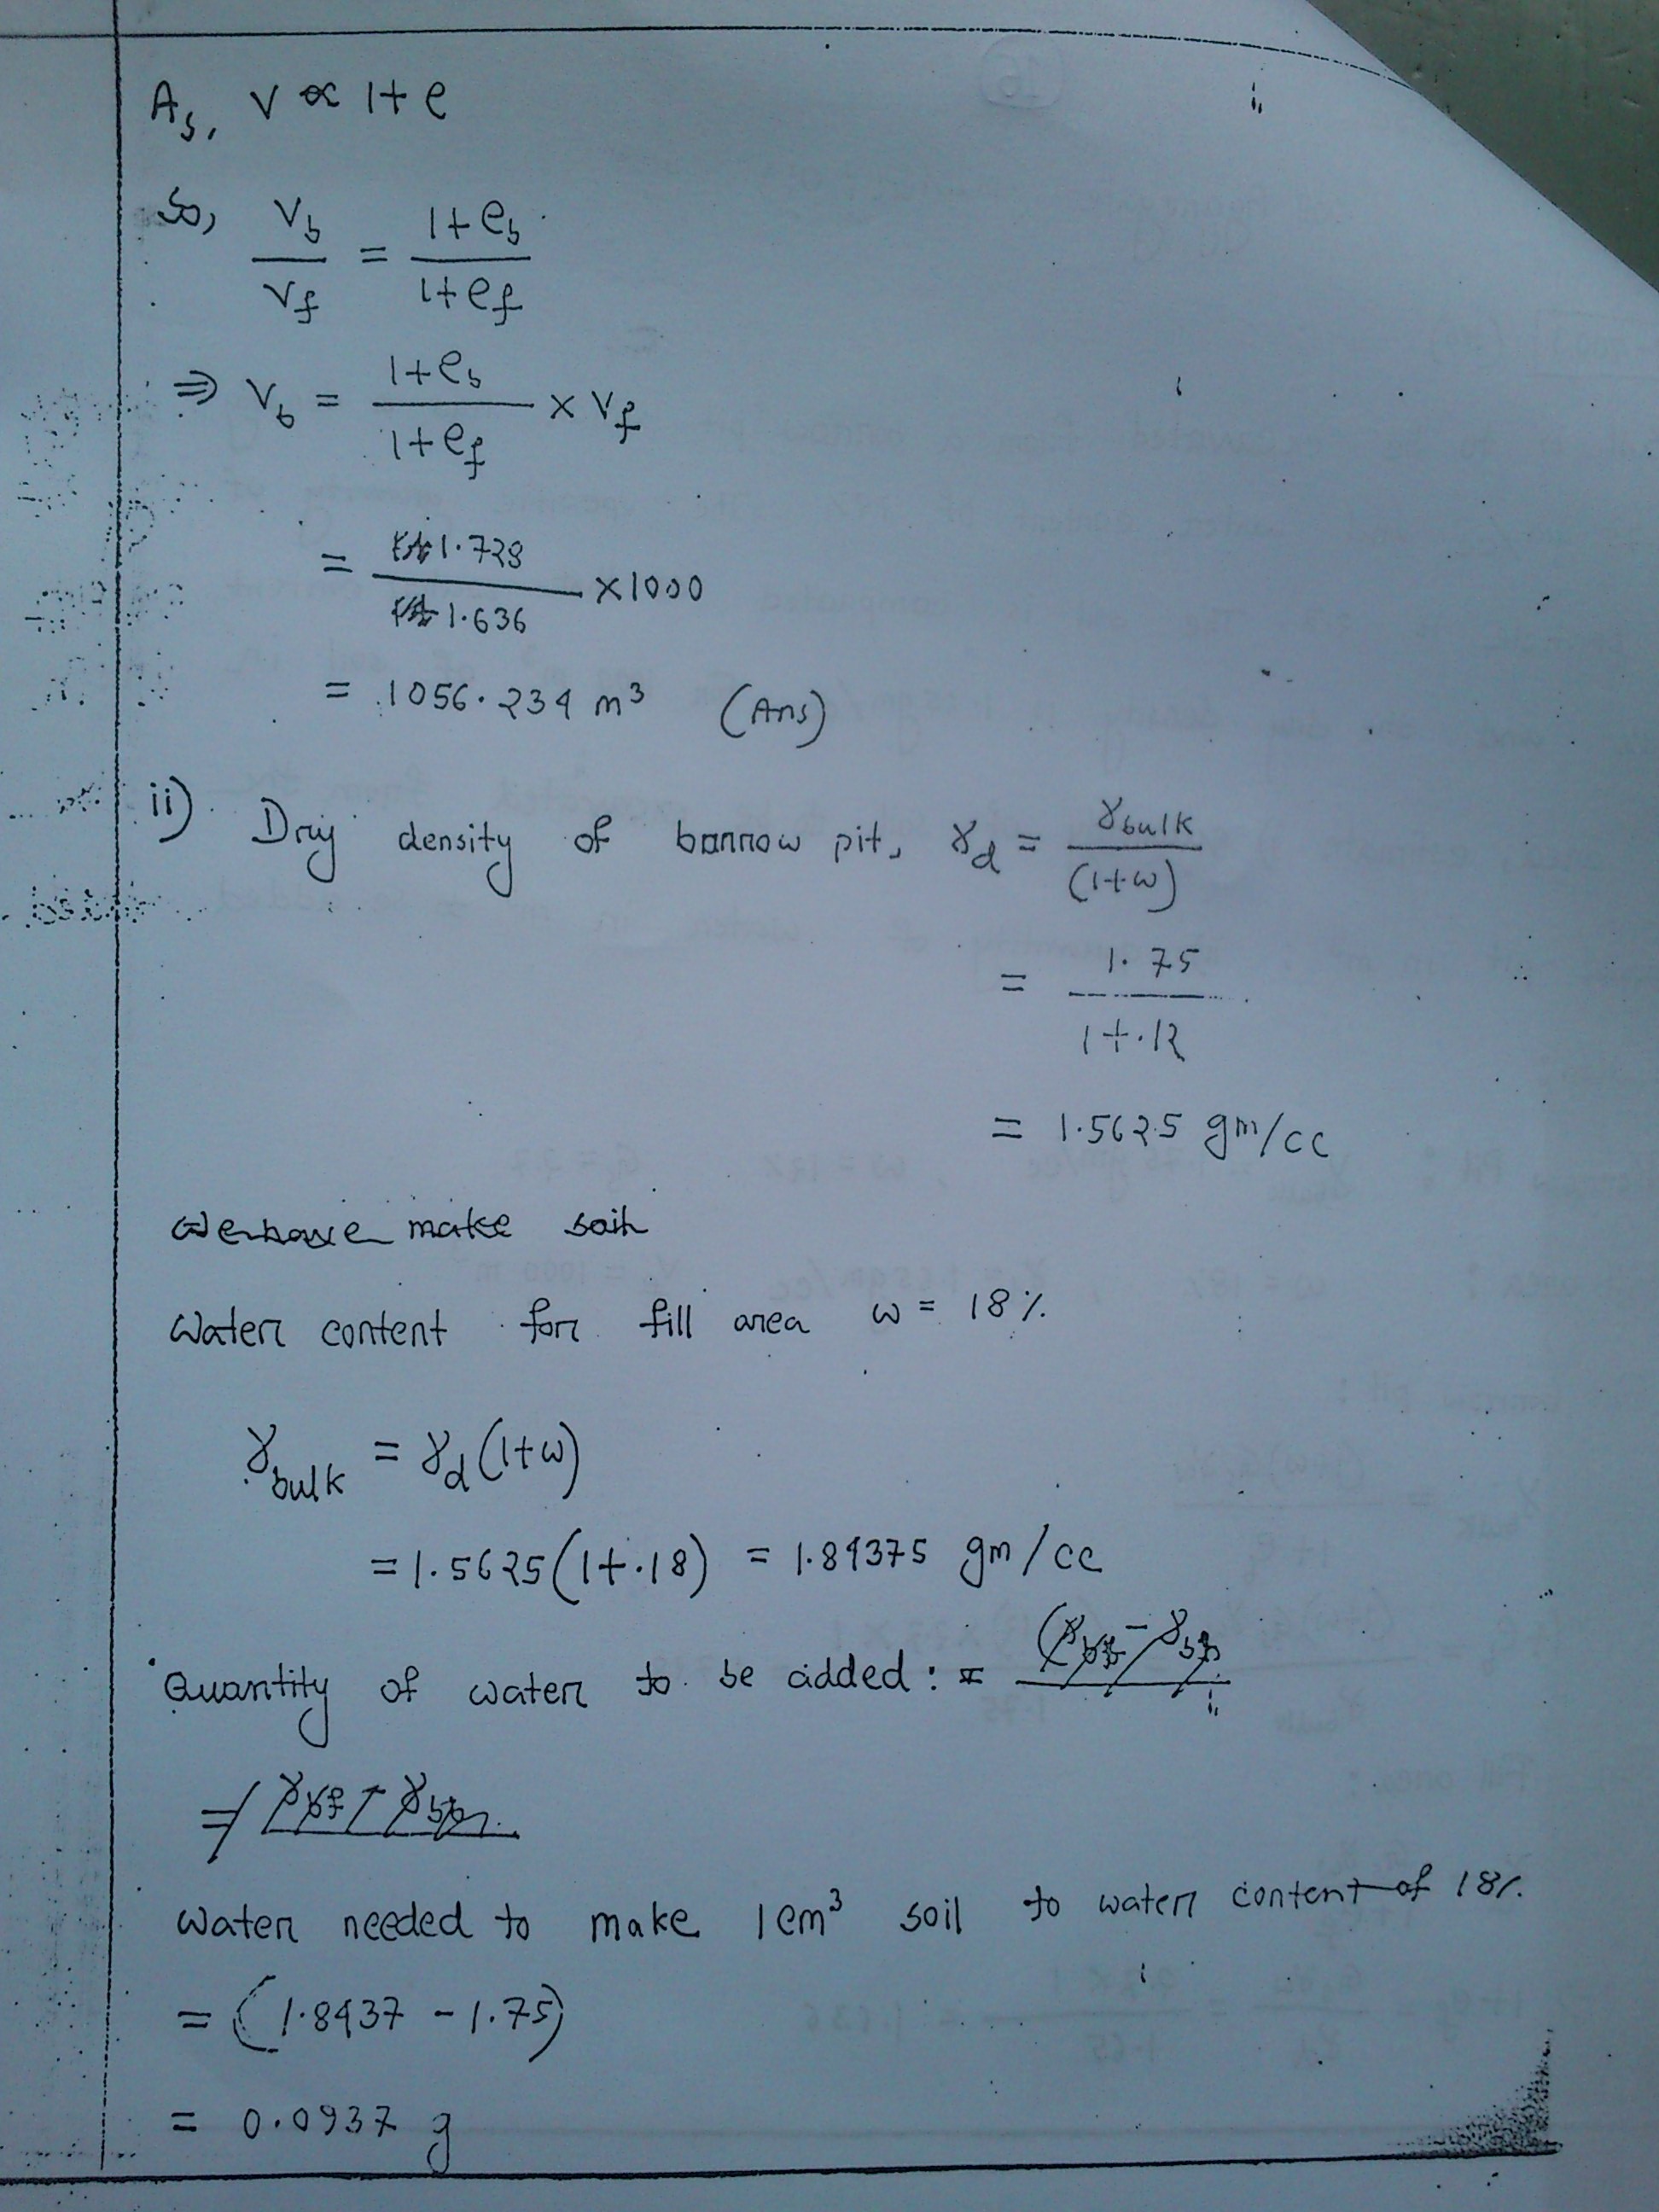 As, V ∝ 1+e
So, V_b / V_f = 1+e_b / 1+e_f
⇒ V_b = 1+e_b / 1+e_f × V_f
= 1.728 / 1.636 × 1000
= 1056.234 m³ (Ans)
ii) Dry density of borrow pit, γ_d = γ_bulk / (1+w)
= 1.75 / 1+.12
= 1.5625 gm/cc
We have make soil
Water content for fill area w = 18%
γ_bulk = γ_d (1+w)
= 1.5625 (1+.18) = 1.84375 gm/cc
Quantity of water to be added : =
Water needed to make 1cm³ soil to water content of 18%
= (1.8437 - 1.75)
= 0.0937 g